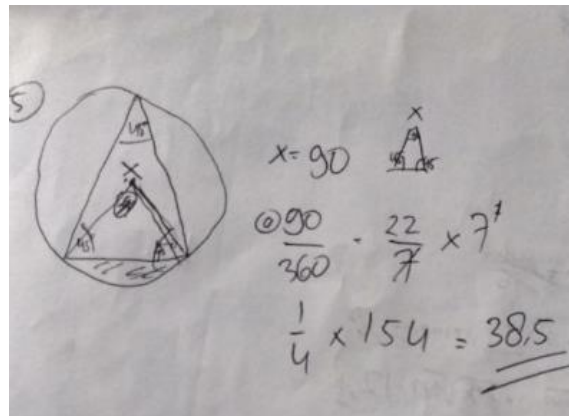 5
45
x
45
x = 90
x
45 45
90/360 · 22/7 × 7
1/4 × 154 = 38,5